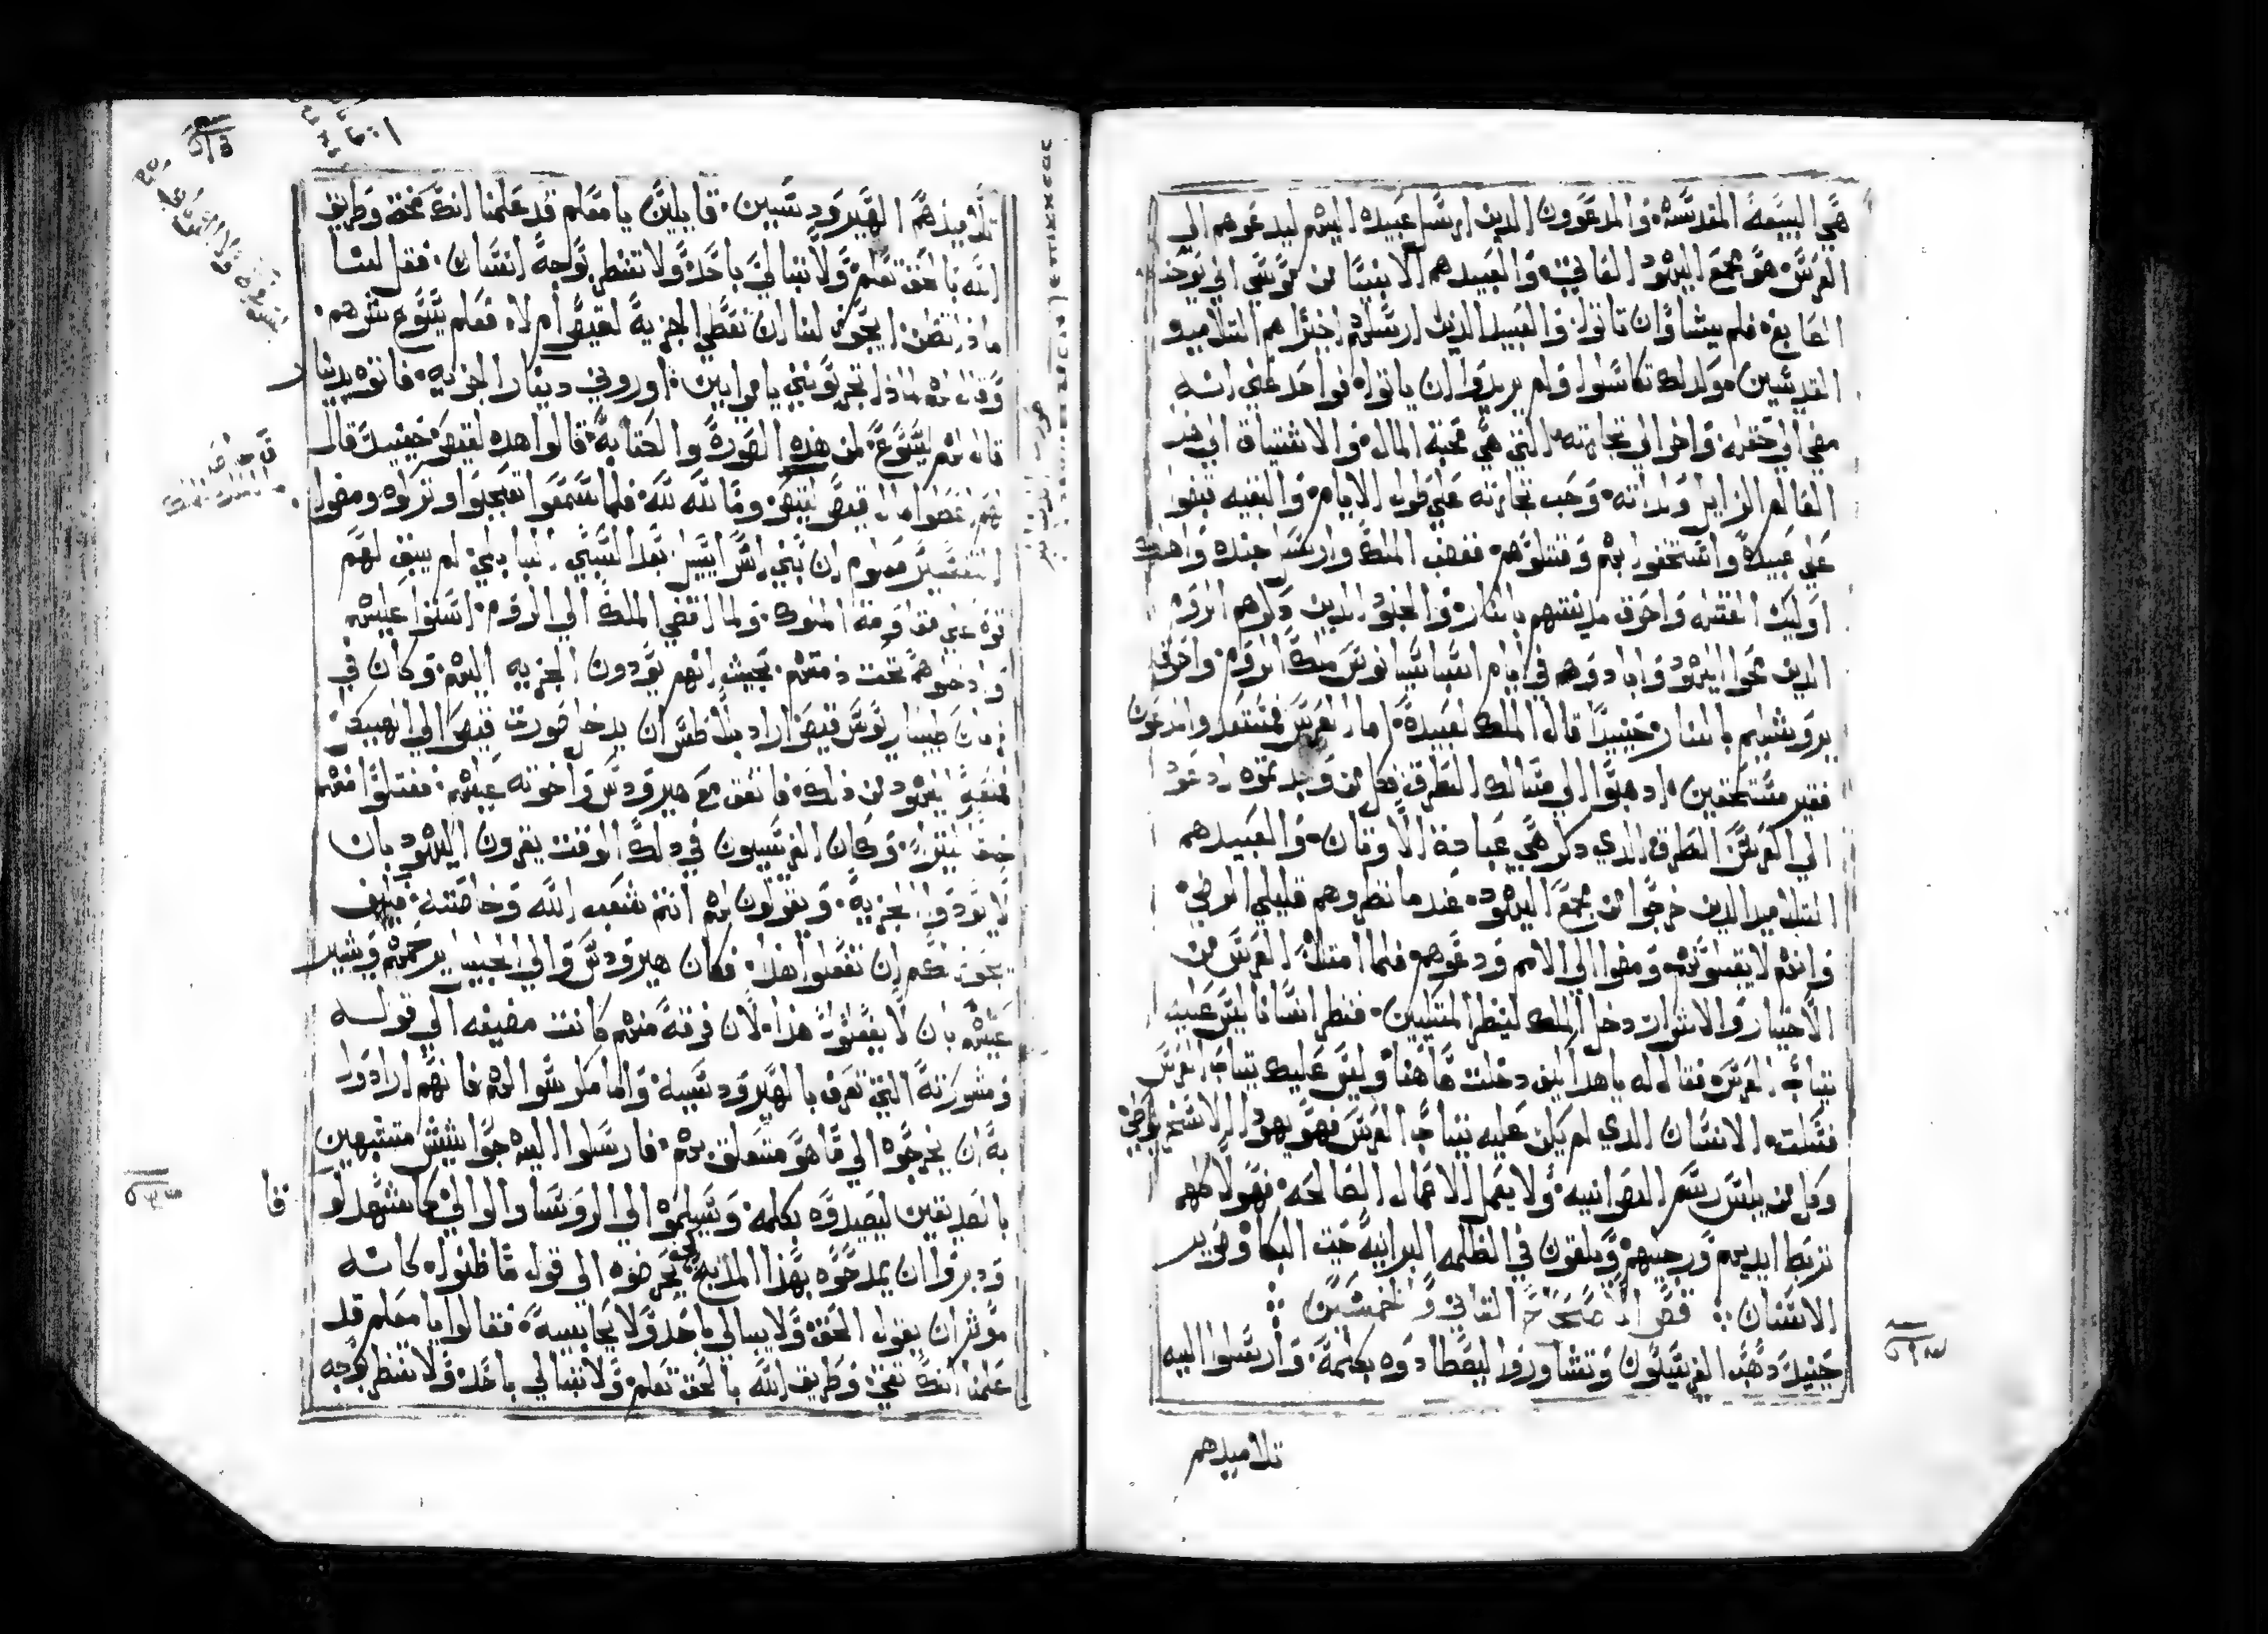 هي البيعة المقدسة، والمدعوون الدين ارسل عبيده اليهم ليدعوهم الى
العرس هو مجمع اليهود القاني، والعبيد هم الانبيا من موسى الى يوحنا
الصابغ، فلم يشاوا ان ياتوا، والعبيد الدين ارسلهم اخيرا هم التلاميد و
القديسين، ولدلك تكاسلوا ولم يريدوا ان ياتوا، فواحد عني انه
مضى الى حقله، واخر الى تجارته التي هي محبة المال، والاشتياق الى
العالم الزايل ولداته، وحب تجارته على طول الايام، والبقيه قبضوا
على عبيده واستخفوا بهم وقتلوهم، فغضب الملك وارسل جنده واهلك
اوليك القتله واحرق مدينتهم بالنار، والجنود الدين دكرهم الروم
الدين محوا اليهود وابادوهم في ايام اسباسيانوس ملك الروم، واحرق
يروشليم بالنار، حينيدا قال الملك لعبيده، اما العرس فمستعد والمدعون
فغير مستحقين، ادهبوا الى مسالك الطرق فكل من وجدتموه ادعوه
الى العرس، الطرق الدي دكر هي عبادة الاوتان، والعبيد هم
التلاميد الدين خرجوا من مجمع اليهود، عندما نظروهم قليلي الرضى،
وانهم لا يقبلوهم، ومضوا الى الامم ودعوهم، فلما امتلا العرس من
الاخيار والاشرار، دخل الملك لينظر المتكيين، فنظر انسانا ليس عليه
تياب العرس، فقال له يا هدا كيف دخلت هاهنا وليس عليك تياب العرس
فسكت، الانسان الدي لم يكن عليه تياب العرس فهو يهودا الاسخريوطي
وكل من يلبس رسم النصرانيه، ولا يعمل الاعمال الصالحه، فهولا كلهم
تربط ايديهم ورجليهم ويلقون في الظلمه البرانية حيت البكا وضرير
الاسنان ⁘ فص الاصحاح التاني والخمسين ⁘
حينيد دهب الفريسيون وتشاوروا ليصطادوه بكلمة، وارسلوا اليه
تلاميدهم
تلاميدهم الهيرودسيين، قايلين يا معلم قد علمنا انك محق وطريق
الله بالحق تعلم، ولا تبالي باحد، ولا تنظر لوجه انسان، فقل لنا
مادا تظن، ايجوز لنا ان نعطي الجزية لقيصر ام لا، فعلم يسوع شرهم،
وقال لهم لمادا تجربونني يا مرايين، اوروني دينار الجزيه، فاتوه بدينار
قال لهم يسوع، لمن هده الصورة والكتابة، قالوا هده لقيصر، حينيد قال
لهم اعطوا مال قيصر لقيصر، وما لله لله، فلما سمعوا تعجبوا وتركوه ومضوا،
التفسير معلوم ان بني اسراييل بعد السبي البابلي لم يبق لهم
قوه على مقاومة الملوك، ولما انقضى الملك الى الروم، استولوا عليهم
وادخلوهم تحت دمتهم، بحيث انهم يودون الجزيه اليهم، وكان في
زمان طيباريوس قيصر اراد بيلاطس ان يدخل صورت قيصر الى الهيكل،
فمنعه اليهود من ذلك، فاتفق مع هيرودس واخوته عليهم، فقتلوا منهم
خلقا كتيرا، وكان الفريسيون في دلك الوقت يغرون اليهود بان
لا يودوا الجزية، ويقولون لهم انتم شعب الله وخاصته، فكيف
يجوز لكم ان تفعلوا هدا، فكان هيرودس والي الجليل يرحمهم ويشير
عليهم بان لا يفعلوا هدا، لان فرقة منهم كانت مضيفه الى قوله
ومشورته، التي تعرف بالهيرودسيه، واما ملوسوا لهم فانهم ارادوا
به ان يخرجوه الى ما هو متعلق بهم، فارسلوا اليه جواسيس متشبهين
بالصديقين ليصيدوه بكلمه، ويسلموه الى الروسا والوالي كما شهد لو
قا
ودبروا ان يمدحوه بهدا المديح لكي يحرضوه الى قول ما ظنوه، كانه
موثر ان يقول الحق، ولا يبالي باحد ولا يحابيه، فقالوا يا معلم قد
علمنا انك تقي، وطريق الله بالحق تعلم، ولا تبالي باحد، ولا تنظر لوجه